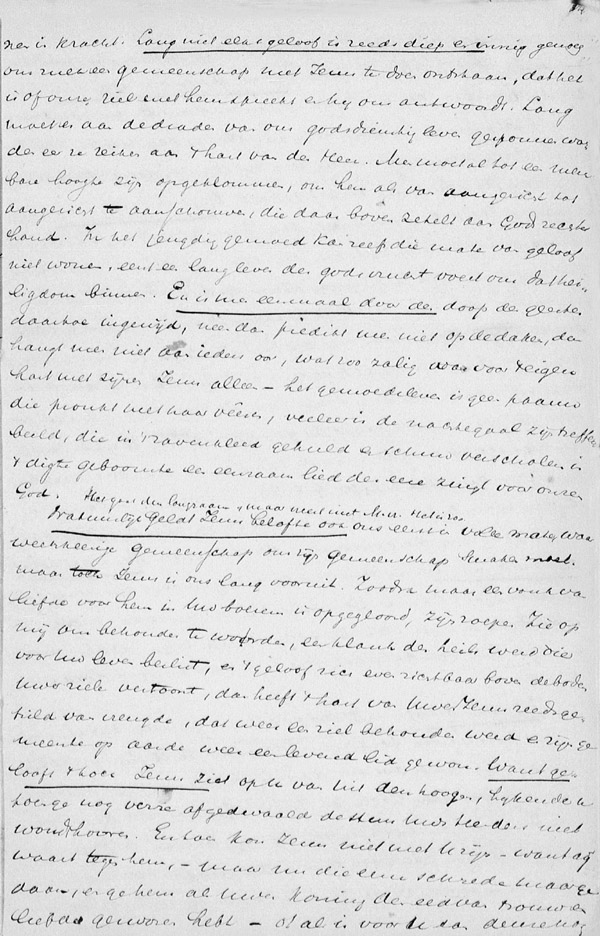 nen is kracht. Lang niet elk geloof is reeds diep en innig genoeg
om met een gemeenschap met Jezus te doen ontstaan, dat het
is of onze ziel met hem spreekt en hij ons antwoordt. Lang
moet er aan de draden van ons godsdienstig leven gesponnen
eer ze reiken aan 't hart van den Heer. Men moet al tot een
bare hoogte zijn opgeklommen, om hem als van aangezicht tot
aangezicht te aanschouwen, die daar boven zetelt aan Gods rechter
hand. In het jeugdig gemoed kan die mate van geloof
niet wonen, eerst een lang leven der godsvrucht voert ons dat hei-
ligdom binnen. En is men eenmaal door den doop des geestes
daartoe ingewijd, neen dan predikt men niet op de daken, dan
hangt men niet aan ieders oor, wat zoo zalig was voor 't eigen
hart met zijnen Jezus alleen – het gemoedsleven is geen paauw
die pronkt met haar vêeren, veeleer is de nachtegaal zijn treffend
beeld, die in 't ravenkleed gehuld en schuw verscholen in
't digte geboomte een eenzaam lied der eere zingt voor onzen
God. langzaam, maar
Natuurlijk geldt Jezus belofte ook ons eerst in volle mate,
wederkeerige gemeenschap ons zijn gemeenschap smaken
maar Jezus is ons lang vooruit. Zoodra maar een vonk van
liefde voor hem in Uw boezem is opgegloord, zijn roepen Zie op
mij om behouden te worden, een klank des heils werd die
voor Uw leven beslist, en 't geloof zich even zichtbaar boven de bodem
Uwer ziele vertoont, dan heeft 't hart van Uwen Jezus reeds ge-
trild van vreugde, dat weer een ziel behouden werd en zijn ge-
meente op aarde weer een levend lid gewon. Want ge-
looft 't hoe Jezus ziet op U van uit den hoogen,
toen ge nog verre afgedwaald de stem Uws Herders niet
woudt hooren. En toen kon Jezus niet met U zijn – want gij
waart tegen hem, – maar nu die eene schrede maar ge-
daan, en ge hem als Uwen Koning den eed van trouw en
liefde gezworen hebt – o! al is voor U dan